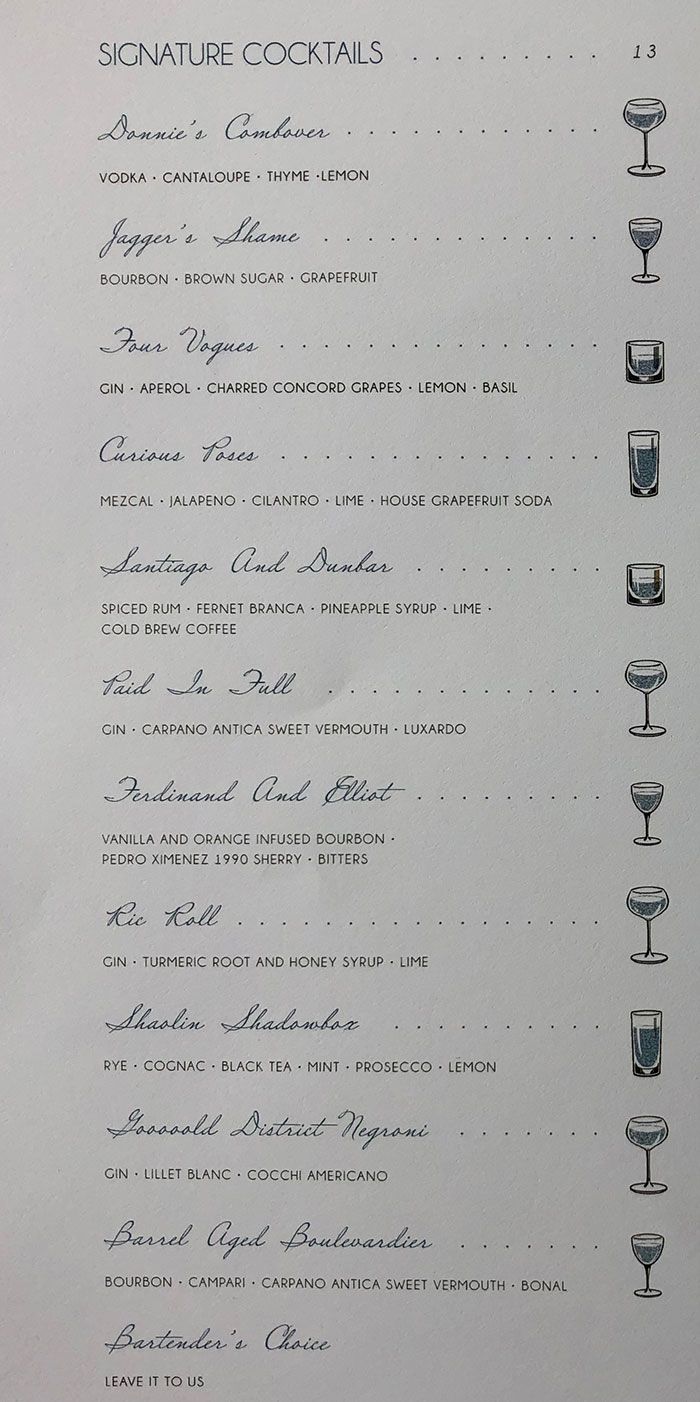 SIGNATURE COCKTAILS . . . . . . . . . 13
Donnie's Combover . . . . . . . . . . . .
VODKA · CANTALOUPE · THYME ·LEMON
Jagger's Shame . . . . . . . . . . . . .
BOURBON · BROWN SUGAR · GRAPEFRUIT
Four Vogues . . . . . . . . . . . . . . .
GIN · APEROL · CHARRED CONCORD GRAPES · LEMON · BASIL
Curious Poses . . . . . . . . . . . . . . .
MEZCAL · JALAPENO · CILANTRO · LIME · HOUSE GRAPEFRUIT SODA
Santiago And Dunbar . . . . . . . . .
SPICED RUM · FERNET BRANCA · PINEAPPLE SYRUP · LIME ·
COLD BREW COFFEE
Paid In Full . . . . . . . . . . . . .
GIN · CARPANO ANTICA SWEET VERMOUTH · LUXARDO
Ferdinand And Elliot . . . . . . . . .
VANILLA AND ORANGE INFUSED BOURBON ·
PEDRO XIMENEZ 1990 SHERRY · BITTERS
Ric Roll . . . . . . . . . . . . . . . . .
GIN · TURMERIC ROOT AND HONEY SYRUP · LIME
Shaolin Shadowbox . . . . . . . . . .
RYE · COGNAC · BLACK TEA · MINT · PROSECCO · LEMON
Gooooold District Negroni . . . . . . .
GIN · LILLET BLANC · COCCHI AMERICANO
Barrel Aged Boulevardier . . . . . . .
BOURBON · CAMPARI · CARPANO ANTICA SWEET VERMOUTH · BONAL
Bartender's Choice
LEAVE IT TO US